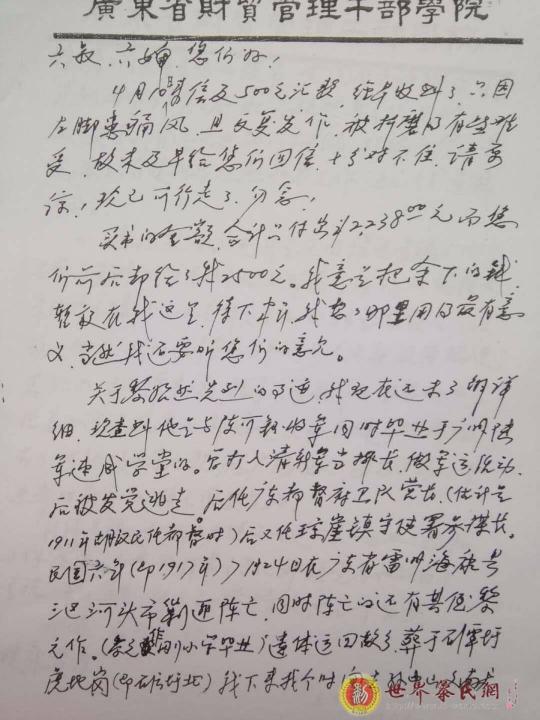 廣東省財貿管理干部學院
六叔、六婶，您们好！
4月10日信及500元汇款，经早收到了，只因
左脚患痛风，且反复发作，被折磨的有些难
受，故未及早给您们回信，十分对不住，请原
谅！现已可行走了，勿念！
买书的金额，合计只付出¥2,238.00元 而您
们前后却给了我2500元。我意是把余下的钱，
暂放在我这里，待下来，我看哪里用的最有意
义，当然我还要听您们的意见。
关于黎 先烈的 ，我现在还未了解详
细，现查到他是与陈可钰将军同时毕业于广州陆
军速成学堂的。后打入清新军当排长，做军运活动，
后被发觉逃走。后任广东都督府卫队营长，(估计是
1911年胡汉民任都督时)后又任琼崖镇守使署参谋长。
民国六年(即1917年)7月24日在广东省雷州海康县
河头市 阵亡，同时阵亡的还有其侄黎
元作。( 小学毕业)遗体运回故乡，葬于 圩
虎地岗(即 圩北) 我下来找个时
世界黎氏網